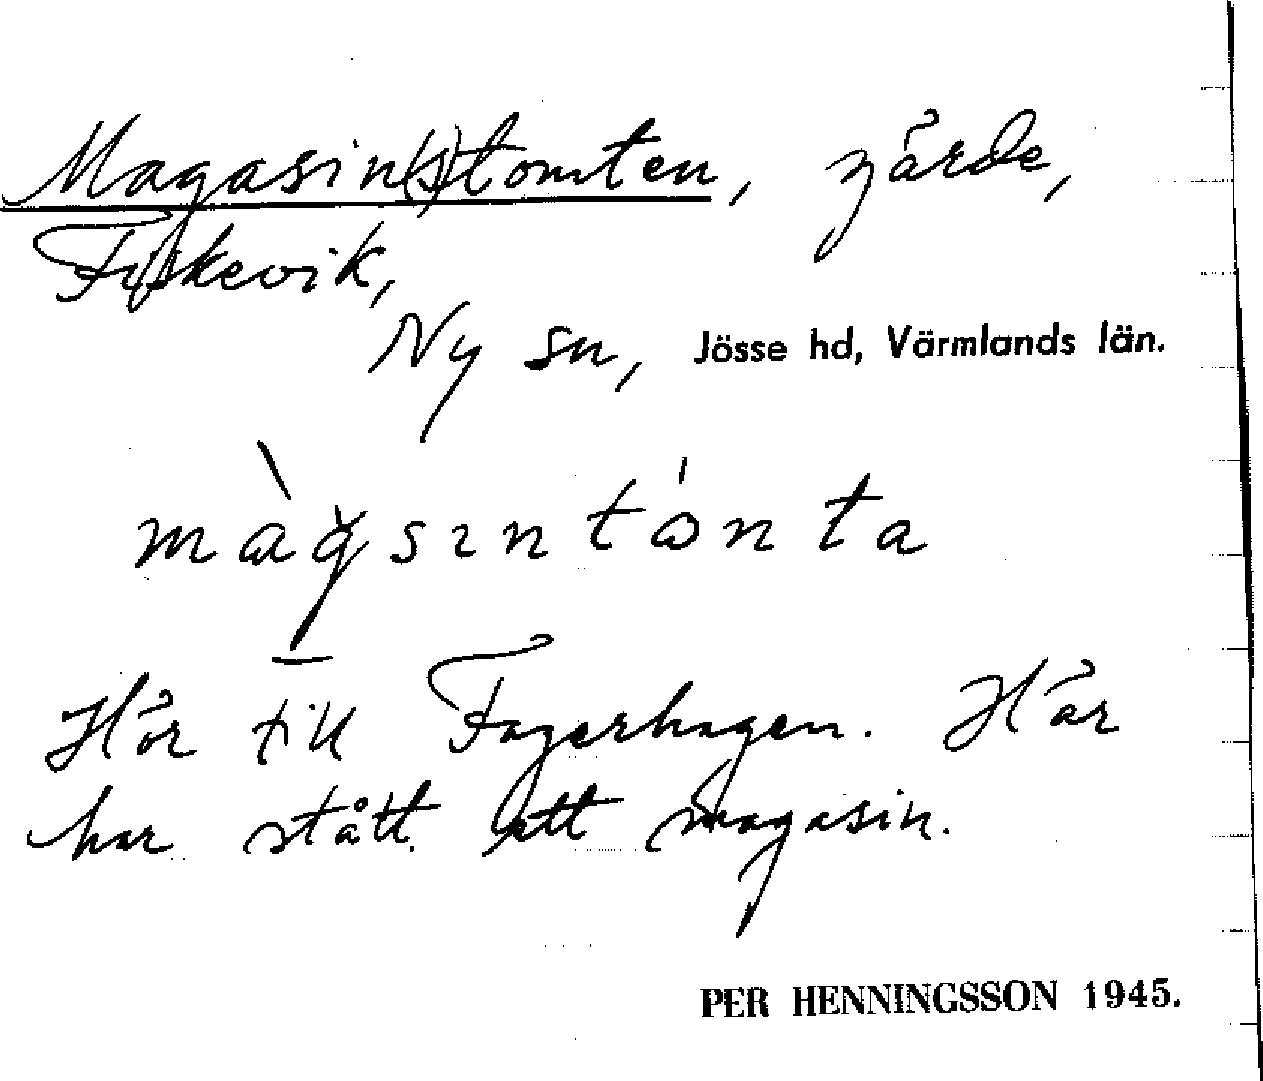 Magasin(s)tomten, gärde,
Fiskevik,
Ny sn, Jösse hd, Värmlands län.
màgsıntɷ́nta
Hör till Fagerhagen. Här
har stått ett magasin.
PER HENNINGSSON 1945.